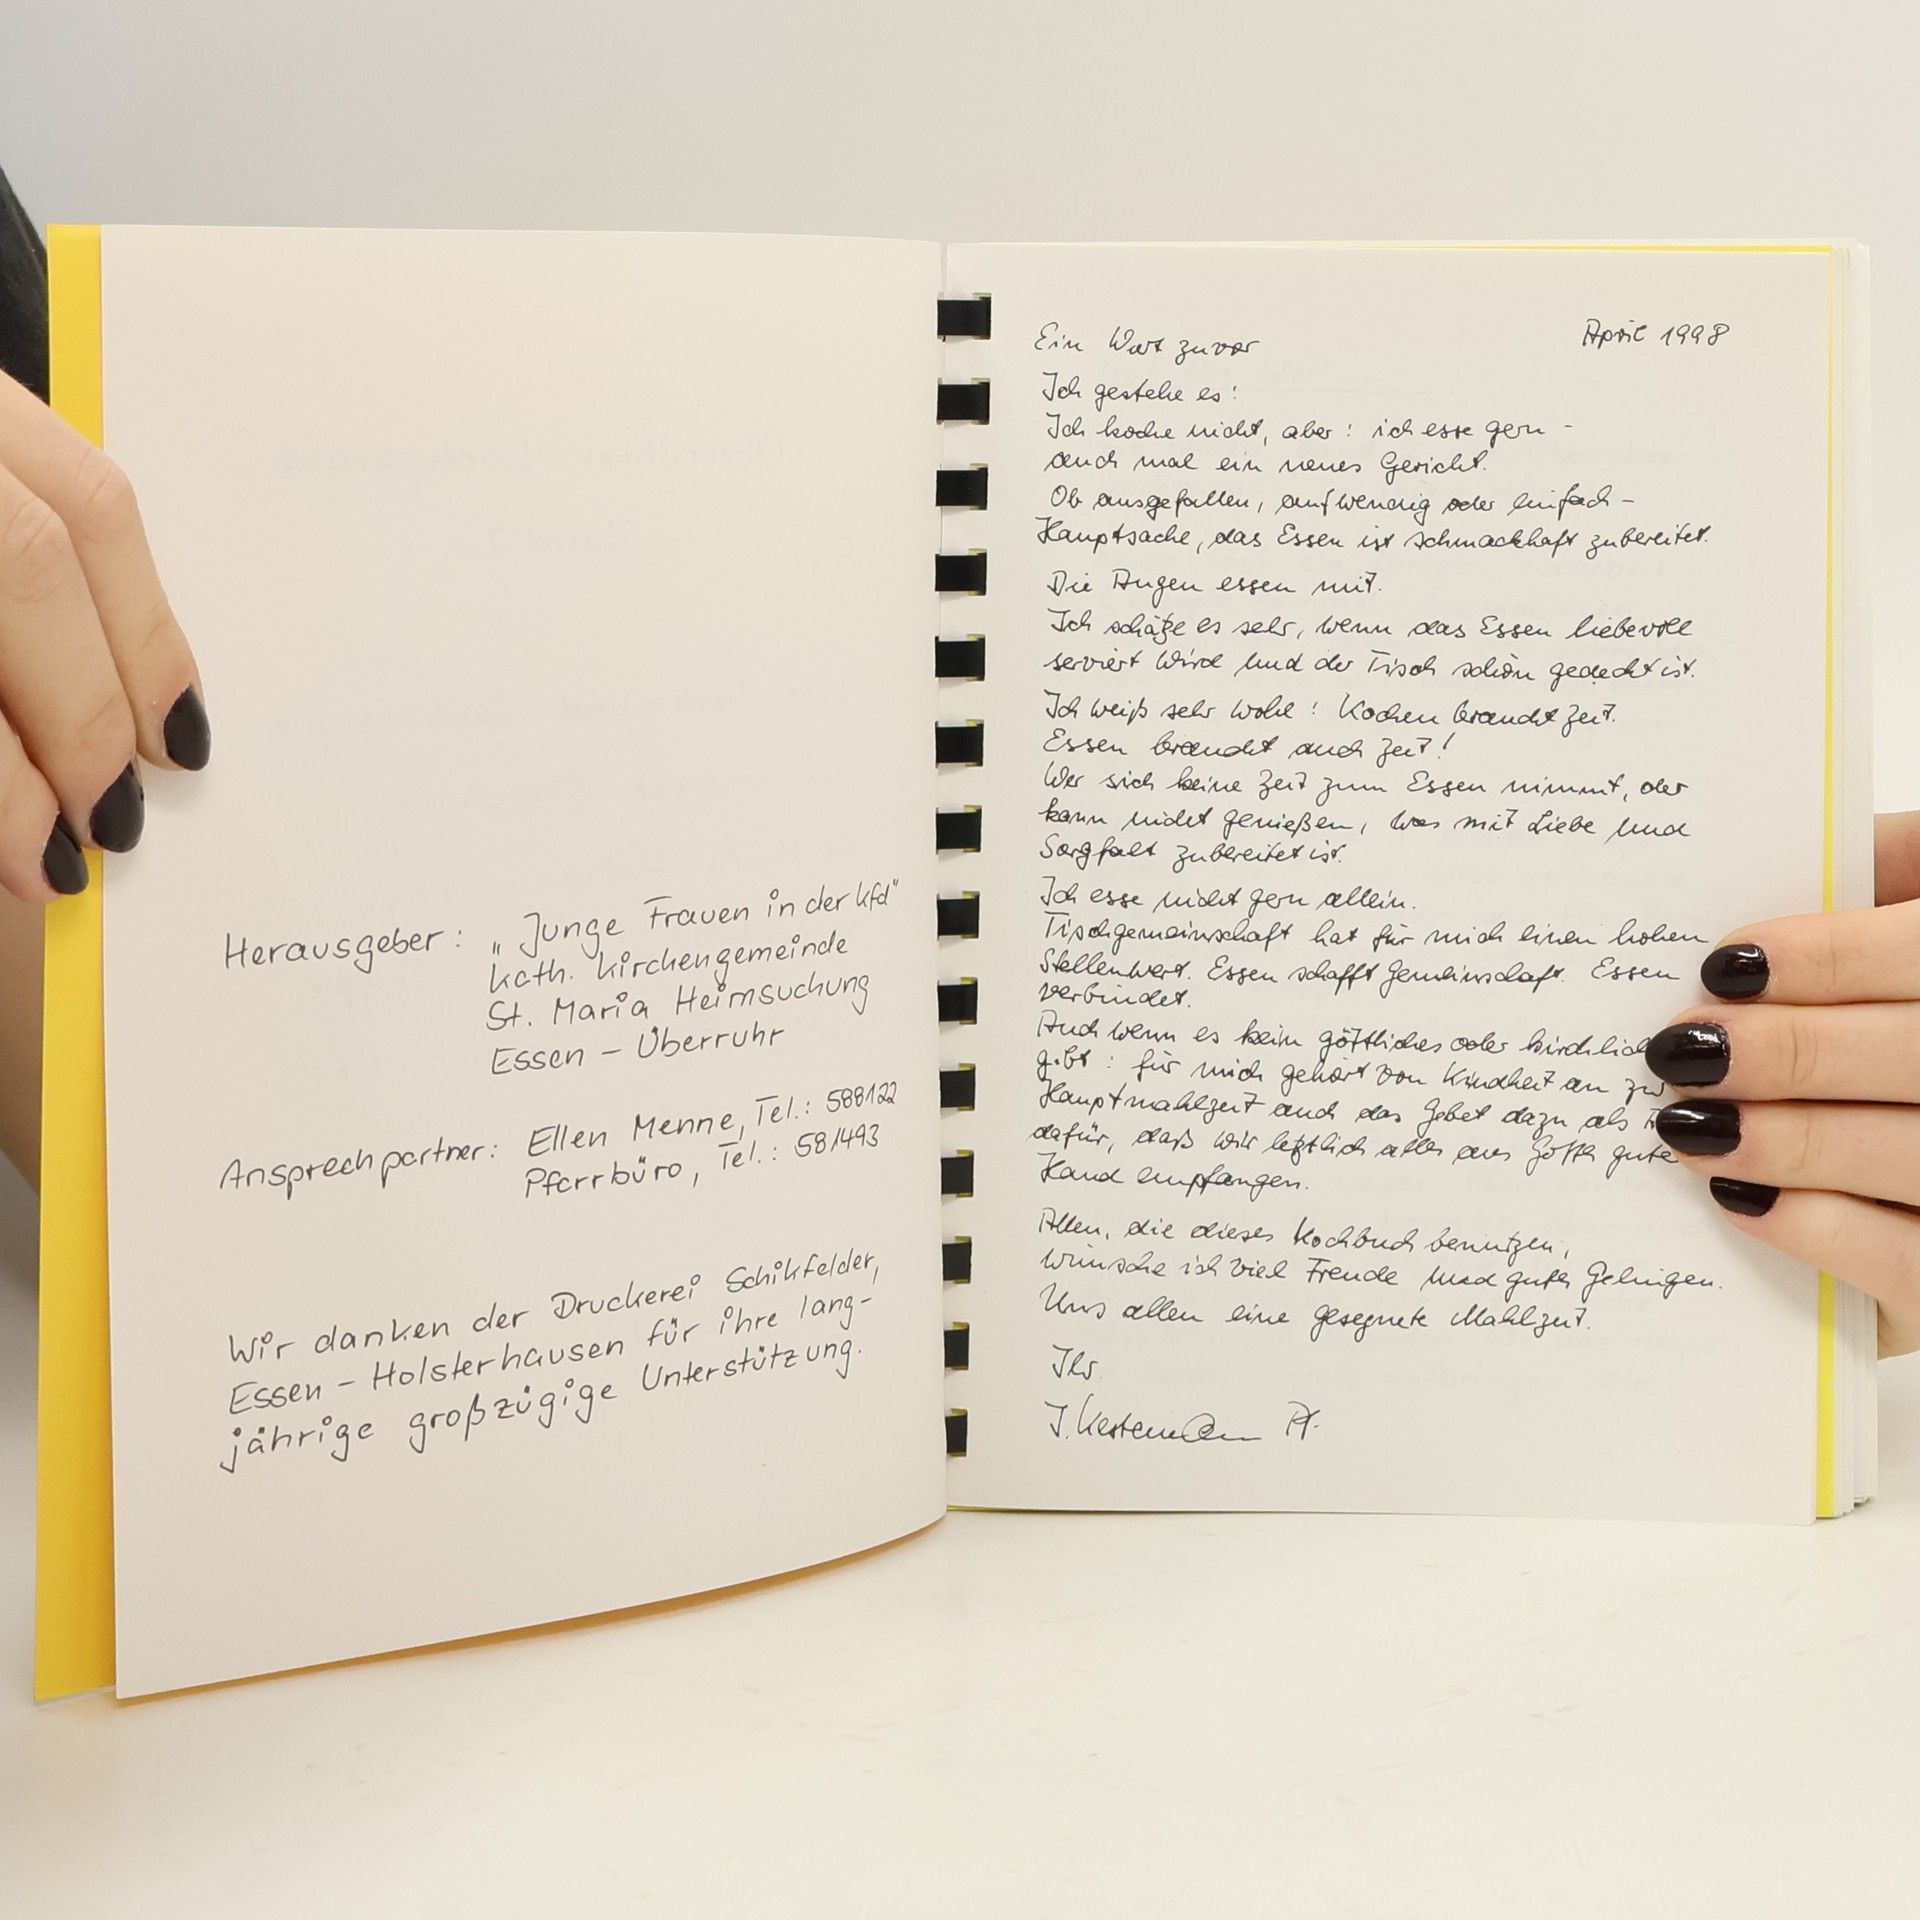 Herausgeber: „Junge Frauen in der kfd"
Kath. Kirchengemeinde
St. Maria Heimsuchung
Essen - Überruhr
Ansprechpartner: Ellen Menne, Tel.: 588122
Pfarrbüro, Tel.: 581493
Wir danken der Druckerei Schikfelder,
Essen - Holsterhausen für ihre lang-
jährige großzügige Unterstützung.
Ein Wort zuvor April 1998
Ich gestehe es:
Ich koche nicht, aber: ich esse gern -
auch mal ein neues Gericht.
Ob ausgefallen, aufwendig oder einfach -
Hauptsache, das Essen ist schmackhaft zubereitet.
Die Augen essen mit.
Ich schätze es sehr, wenn das Essen liebevoll
serviert wird und der Tisch schön gedeckt ist.
Ich weiß sehr wohl: Kochen braucht Zeit.
Essen braucht auch Zeit!
Wer sich keine Zeit zum Essen nimmt, der
kann nicht genießen, was mit Liebe und
Sorgfalt zubereitet ist.
Ich esse nicht gern allein.
Tischgemeinschaft hat für mich einen hohen
Stellenwert. Essen schafft Gemeinschaft. Essen
verbindet.
Auch wenn es kein göttliches oder
gibt: für mich gehört von Kindheit an
Hauptmahlzeit auch das Gebet dazu als
dafür, daß wir letztlich alles aus Gottes
Hand empfangen.
Allen, die dieses Kochbuch benutzen,
wünsche ich viel Freude und gutes Gelingen.
Uns allen eine gesegnete Mahlzeit.
Ihr